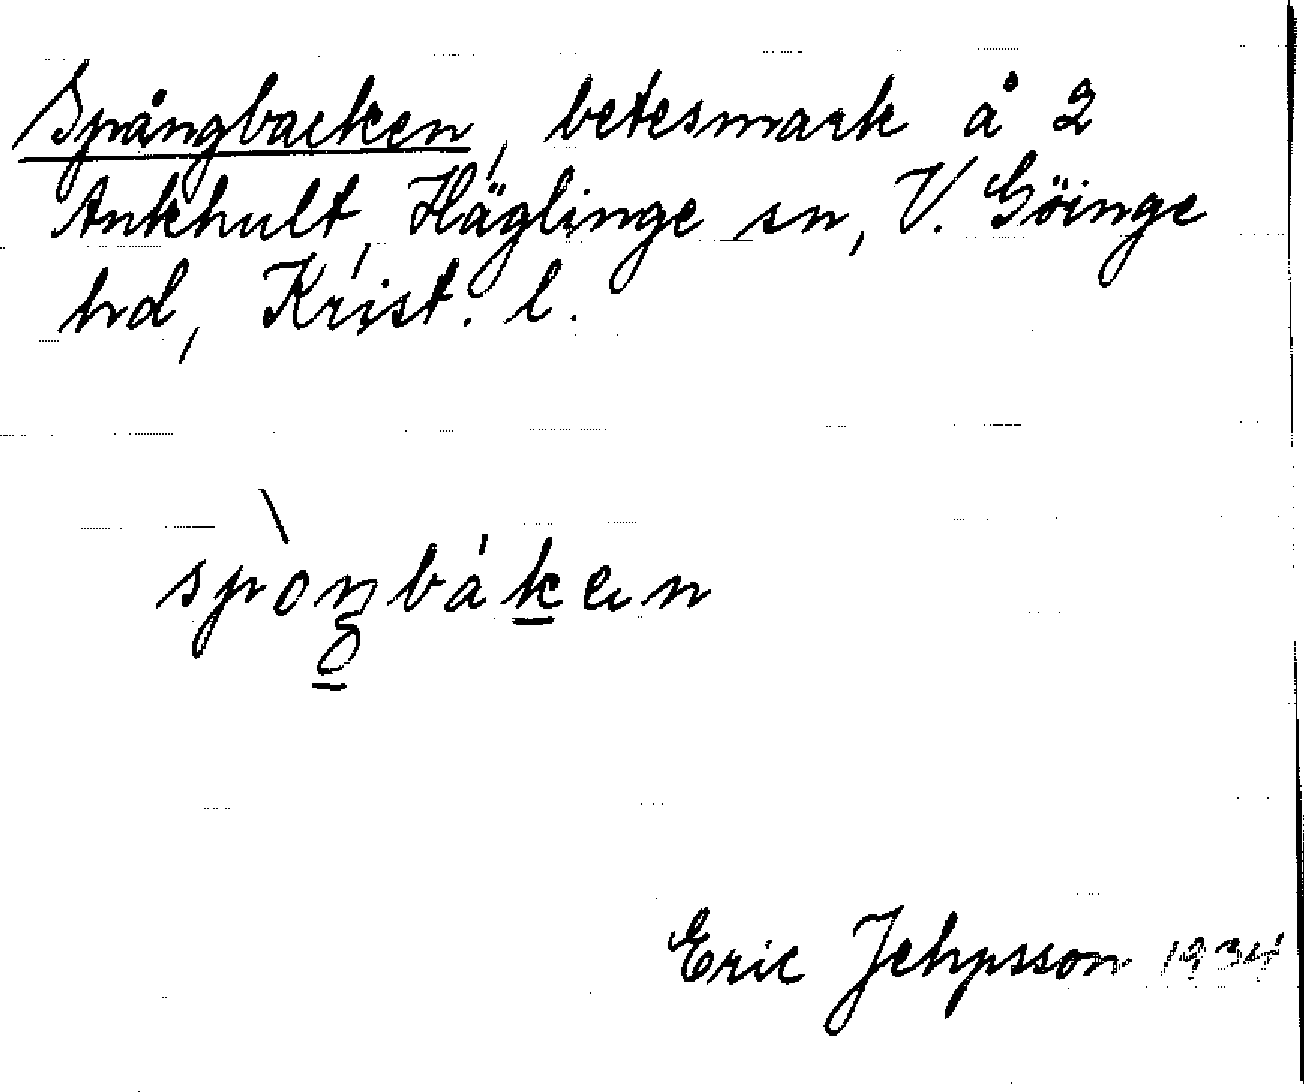 Spångbacken, betesmark å 2
Ankhult, Häglinge sn, V. Göinge
hd, Krist. l.
spòŋbák̲en
Eric Jehpsson 1934